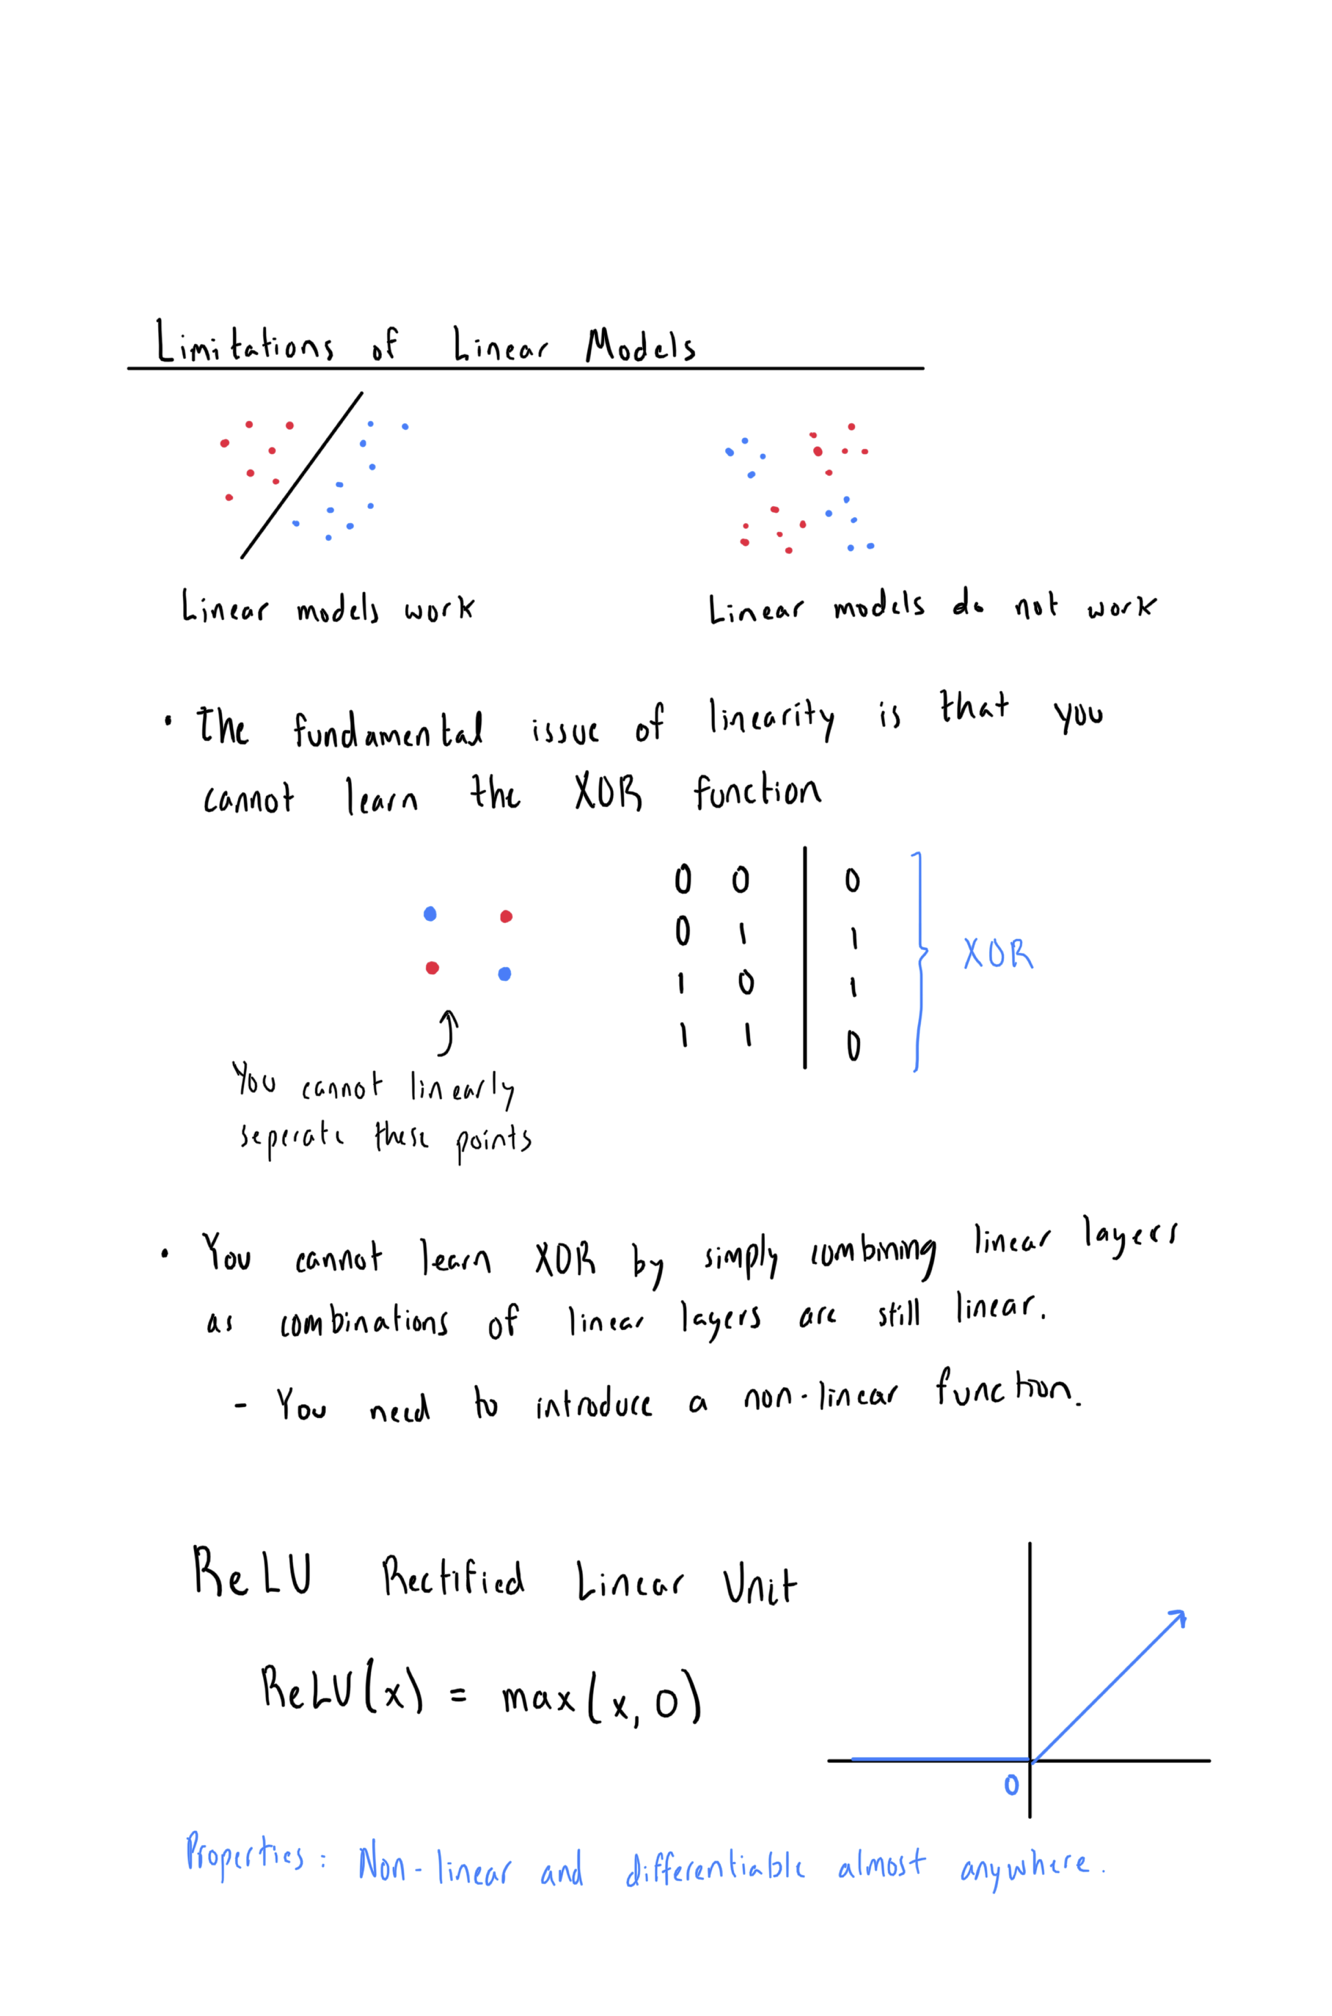 Limitations of Linear Models
Linear models work
Linear models do not work
• The fundamental issue of linearity is that you
cannot learn the XOR function
0 0 | 0
0 1 | 1
1 0 | 1
1 1 | 0
XOR
You cannot linearly
seperate these points
• You cannot learn XOR by simply combining linear layers
as combinations of linear layers are still linear.
- You need to introduce a non-linear function.
ReLU Rectified Linear Unit
ReLU(x) = max(x, 0)
0
Properties: Non-linear and differentiable almost anywhere.